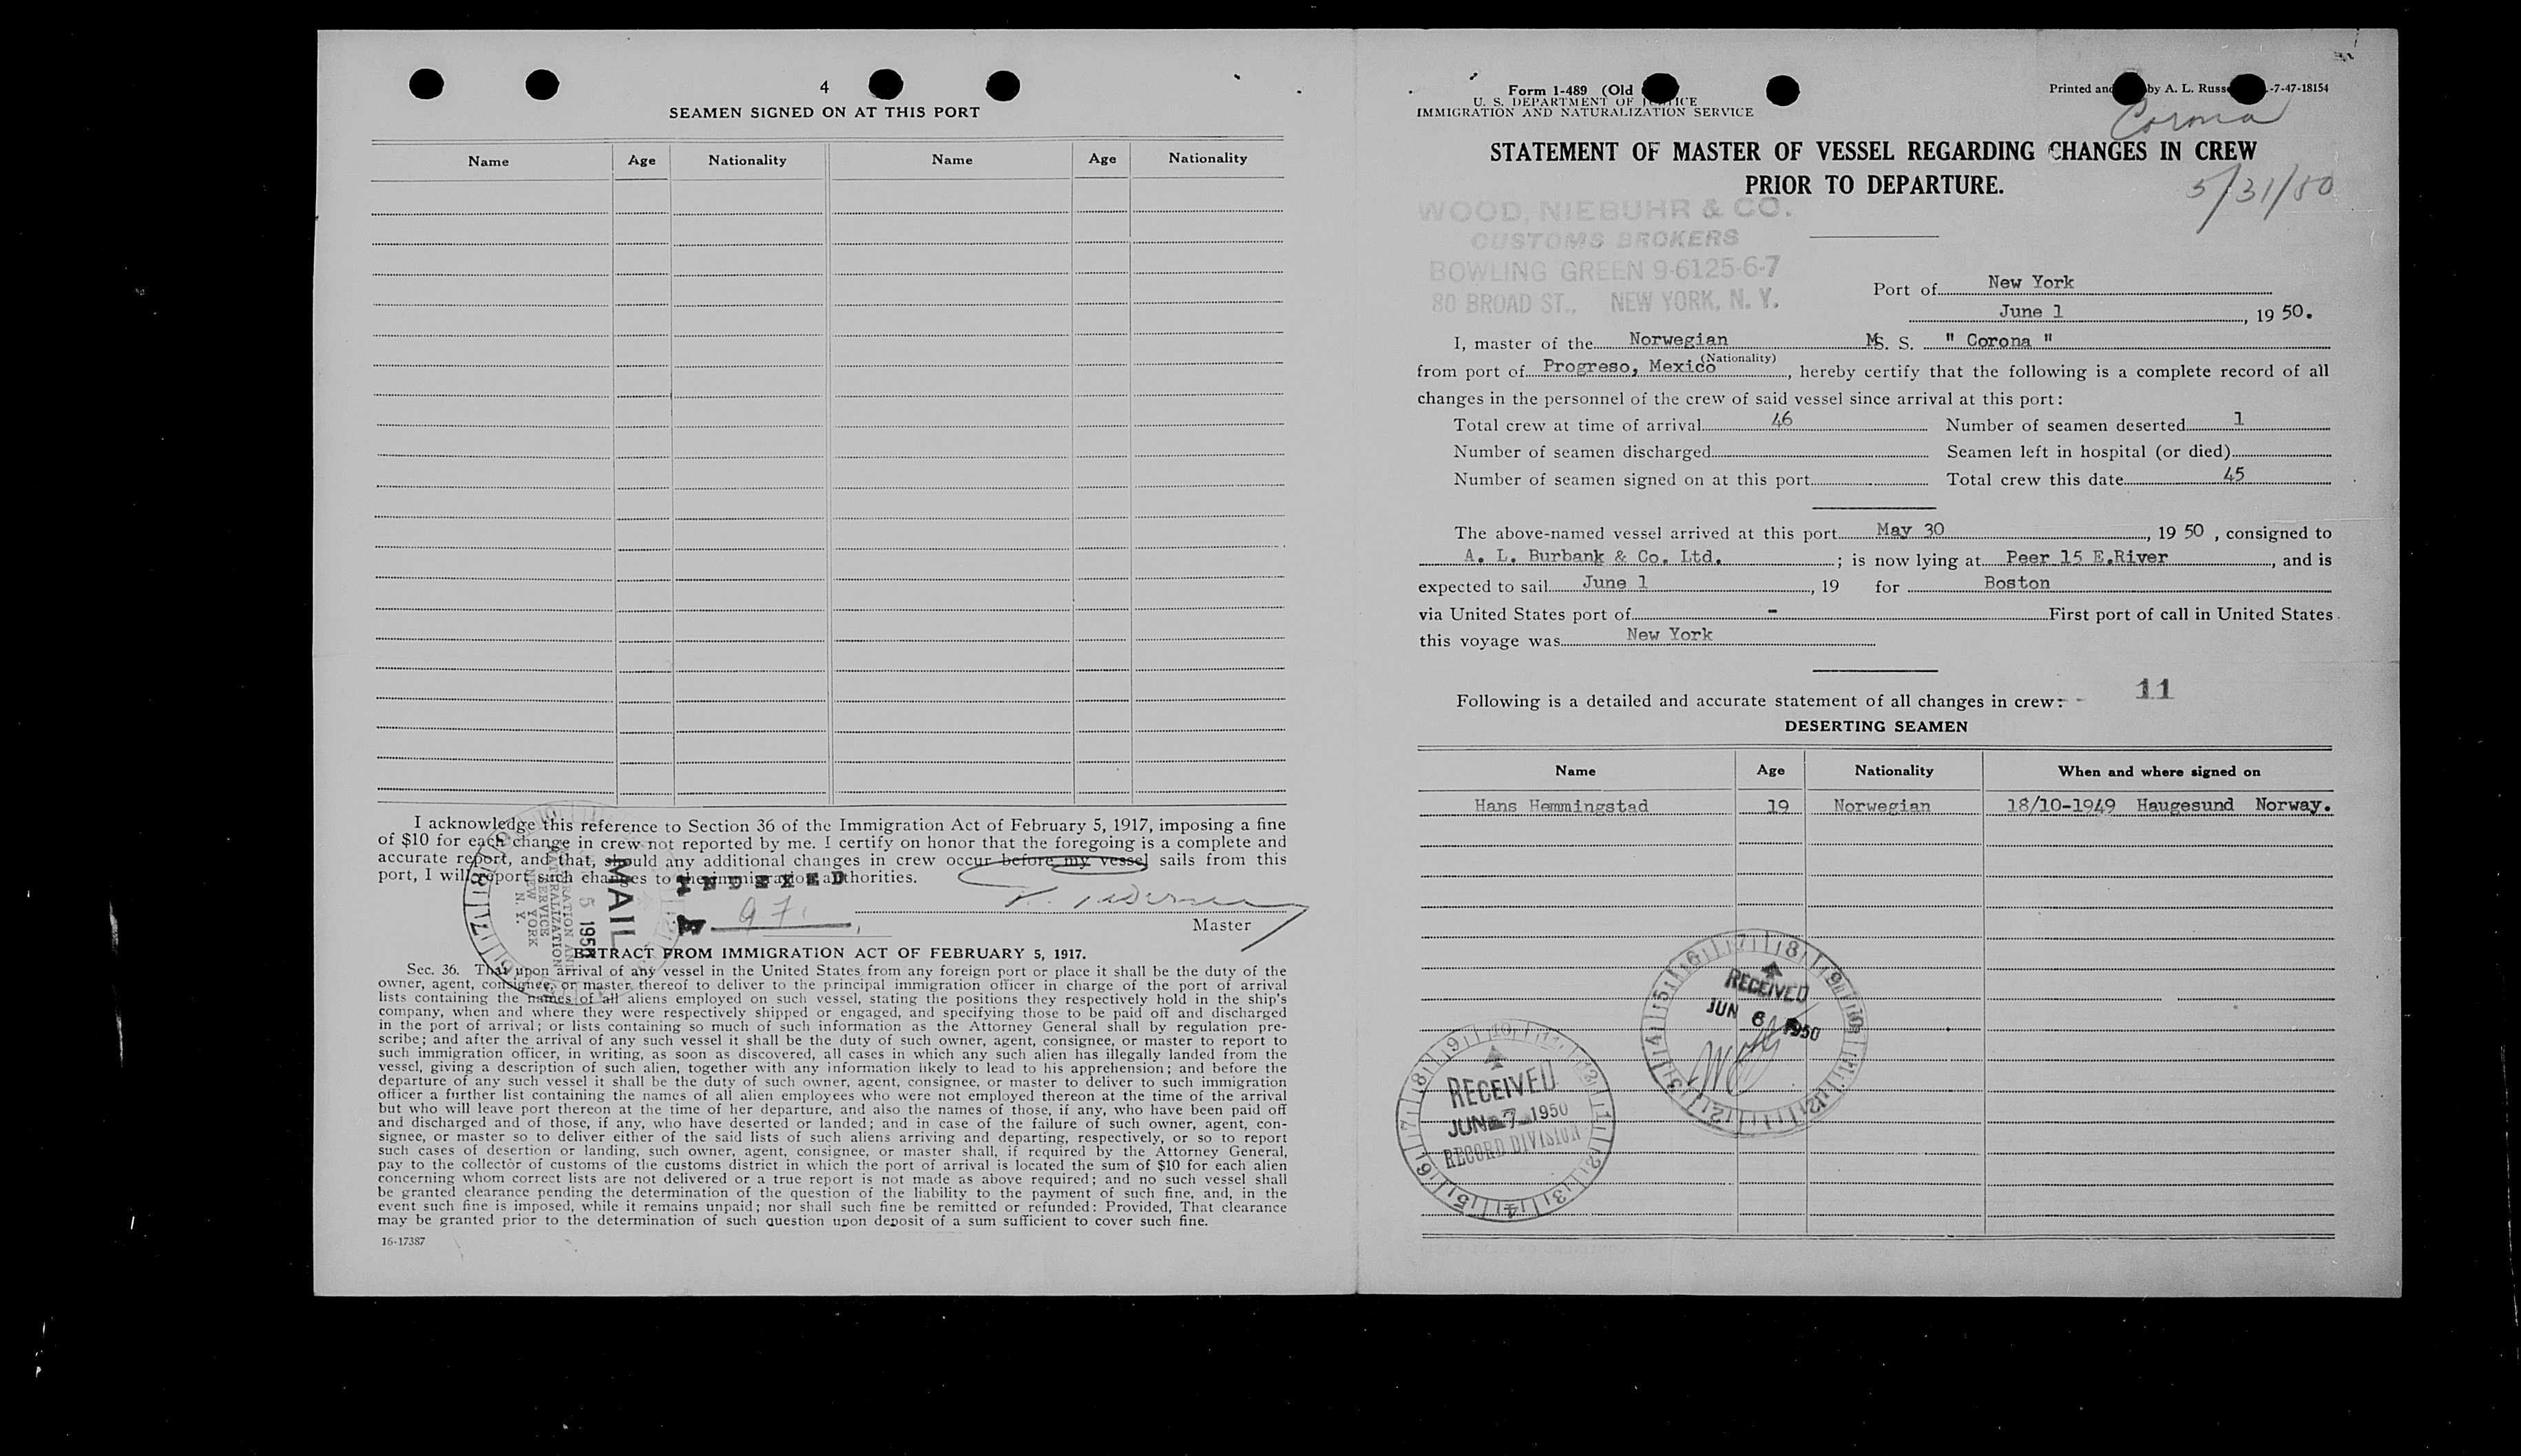 4
SEAMEN SIGNED ON AT THIS PORT
Name Age Nationality Name Age Nationality
I acknowledge this reference to Section 36 of the Immigration Act of February 5, 1917, imposing a fine
of $10 for each change in crew not reported by me. I certify on honor that the foregoing is a complete and
accurate report, and that, should any additional changes in crew occur before my vessel sails from this
port, I will report such changes to the immigration authorities.
INDEXED
97
MAIL
5 195
IMMIGRATION AND
NATURALIZATION
SERVICE
NEW YORK
N. Y.
Master
EXTRACT FROM IMMIGRATION ACT OF FEBRUARY 5, 1917.
Sec. 36. That upon arrival of any vessel in the United States from any foreign port or place it shall be the duty of the
owner, agent, consignee, or master thereof to deliver to the principal immigration officer in charge of the port of arrival
lists containing the names of all aliens employed on such vessel, stating the positions they respectively hold in the ship's
company, when and where they were respectively shipped or engaged, and specifying those to be paid off and discharged
in the port of arrival; or lists containing so much of such information as the Attorney General shall by regulation pre-
scribe; and after the arrival of any such vessel it shall be the duty of such owner, agent, consignee, or master to report to
such immigration officer, in writing, as soon as discovered, all cases in which any such alien has illegally landed from the
vessel, giving a description of such alien, together with any information likely to lead to his apprehension; and before the
departure of any such vessel it shall be the duty of such owner, agent, consignee, or master to deliver to such immigration
officer a further list containing the names of all alien employees who were not employed thereon at the time of the arrival
but who will leave port thereon at the time of her departure, and also the names of those, if any, who have been paid off
and discharged and of those, if any, who have deserted or landed; and in case of the failure of such owner, agent, con-
signee, or master so to deliver either of the said lists of such aliens arriving and departing, respectively, or so to report
such cases of desertion or landing, such owner, agent, consignee, or master shall, if required by the Attorney General,
pay to the collector of customs of the customs district in which the port of arrival is located the sum of $10 for each alien
concerning whom correct lists are not delivered or a true report is not made as above required; and no such vessel shall
be granted clearance pending the determination of the question of the liability to the payment of such fine, and, in the
event such fine is imposed, while it remains unpaid; nor shall such fine be remitted or refunded: Provided, That clearance
may be granted prior to the determination of such question upon deposit of a sum sufficient to cover such fine.
16-17387
Form 1-489 (Old
U. S. DEPARTMENT OF JUSTICE
IMMIGRATION AND NATURALIZATION SERVICE
Printed and by A. L. Russe -7-47-18154
Corona
STATEMENT OF MASTER OF VESSEL REGARDING CHANGES IN CREW
PRIOR TO DEPARTURE.
5/31/50
WOOD, NIEBUHR & CO.
CUSTOMS BROKERS
BOWLING GREEN 9-6125-6-7
80 BROAD ST., NEW YORK, N. Y.
Port of New York
June 1, 1950.
I, master of the Norwegian MS. S. " Corona "
(Nationality)
from port of Progreso, Mexico, hereby certify that the following is a complete record of all
changes in the personnel of the crew of said vessel since arrival at this port:
Total crew at time of arrival 46 Number of seamen deserted 1
Number of seamen discharged Seamen left in hospital (or died)
Number of seamen signed on at this port Total crew this date 45
The above-named vessel arrived at this port May 30, 19 50, consigned to
A. L. Burbank & Co. Ltd. ; is now lying at Peer 15 E.River, and is
expected to sail June 1, 19 for Boston
via United States port of - First port of call in United States
this voyage was New York
Following is a detailed and accurate statement of all changes in crew: -
11
DESERTING SEAMEN
Name Age Nationality When and where signed on
Hans Hemmingstad 19 Norwegian 18/10-1949 Haugesund Norway.
RECEIVED
JUN 6 1950
RECEIVED
JUN 7 1950
RECORD DIVISION